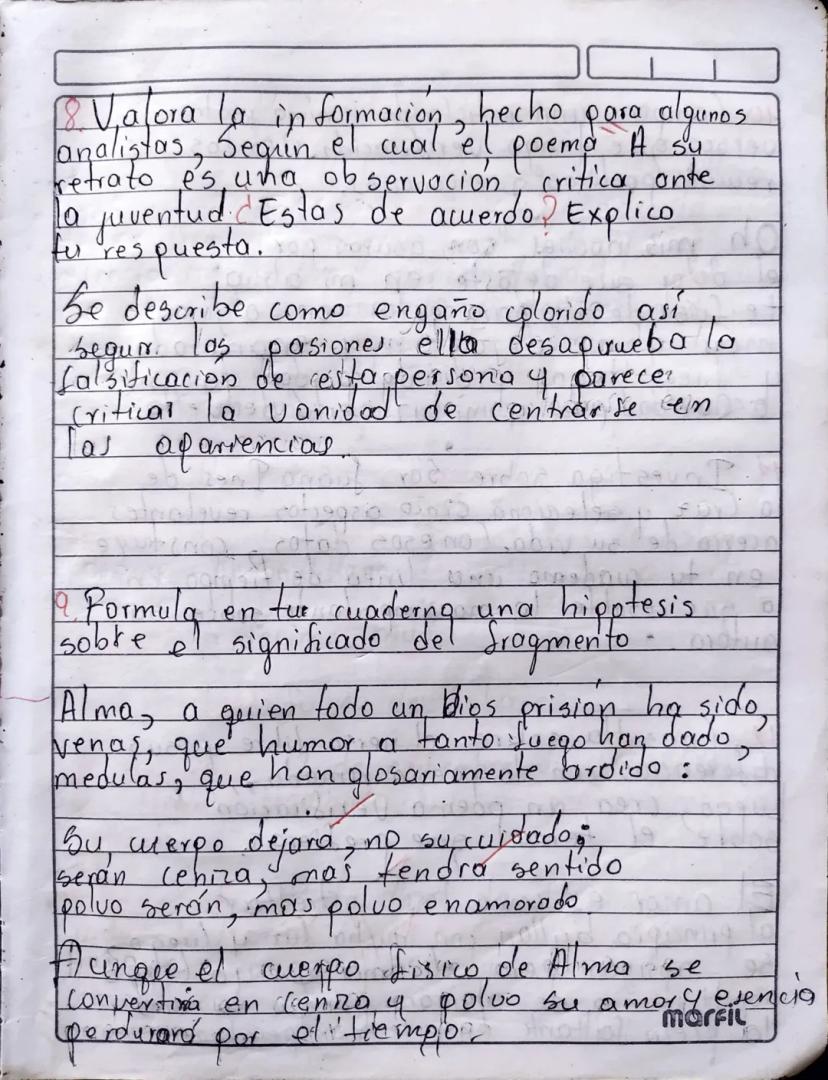 8. Valora la información, hecho para algunos
analistas, Según el cual el poema A su
retrato es una observación critica ante
la juventud ¿Estas de acuerdo? Explico
tu respuesta.
Se describe como engaño colorido así
seguir las pasiones ella desaprueba la
falsificación de esta persona y parece
criticar la vanidad de centrarse en
las apariencias.
9. Formula en tur cuaderno una hipotesis
sobre el significado del fragmento.
Alma, a quien todo un Dios prisión ha sido,
venas, que humor a tanto fuego han dado,
medulas, que han glosariamente ardido:
Su cuerpo dejará, no su cuidado;
serán ceniza, mas tendrá sentido
polvo serán, mas polvo enamorado.
Aunque el cuerpo fisico de Alma se
convertira en ceniza y polvo su amor y esencia
perdurará por el tiempo.
marfil